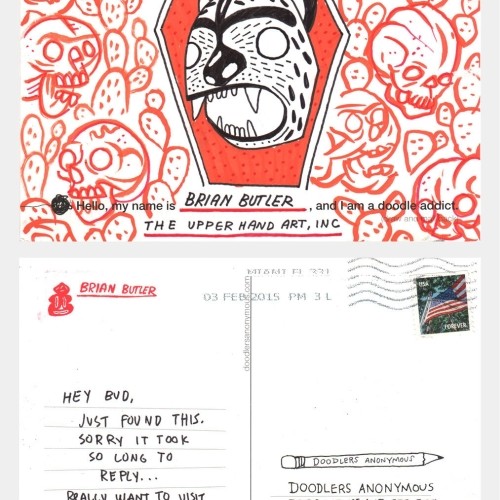 Hello, my name is BRIAN BUTLER, and I am a doodle addict.
THE UPPER HAND ART, INC
BRIAN BUTLER
MIAMI FL 331
03 FEB 2015 PM 3 L
USA
FOREVER
HEY BUD,
JUST FOUND THIS.
SORRY IT TOOK
SO LONG TO
REPLY...
REALLY WANT TO VISIT
DOODLERS ANONYMOUS
DOODLERS ANONYMOUS